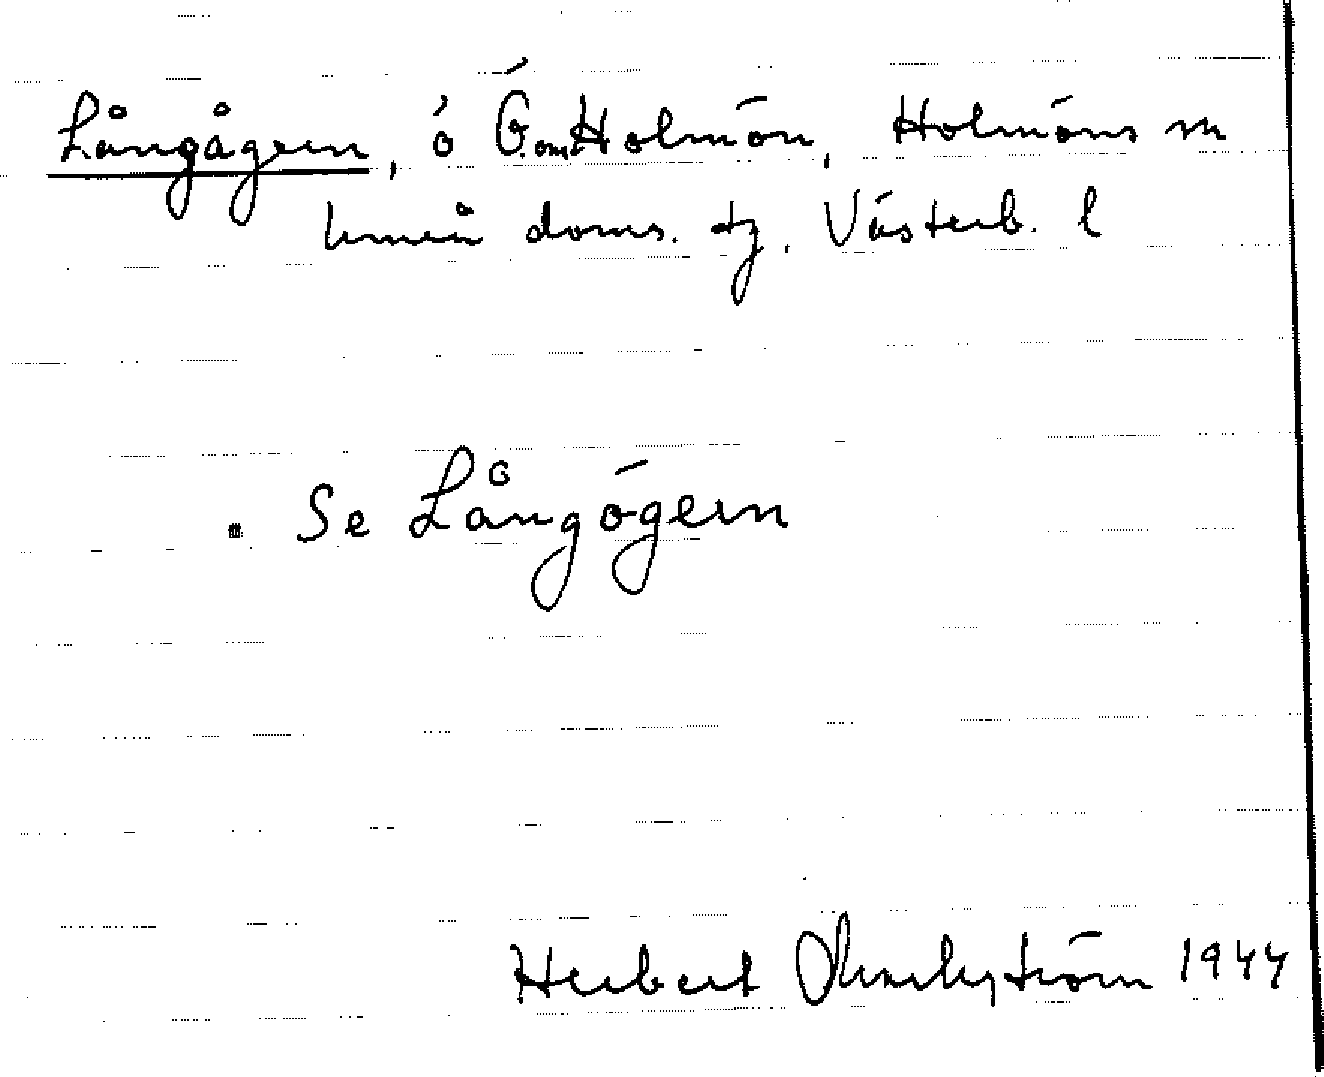 Långågern, ö Ö. om Holmön, Holmöns sn
Umeå doms. tg. Västerb. l
Se Långögern
Herbert 1944